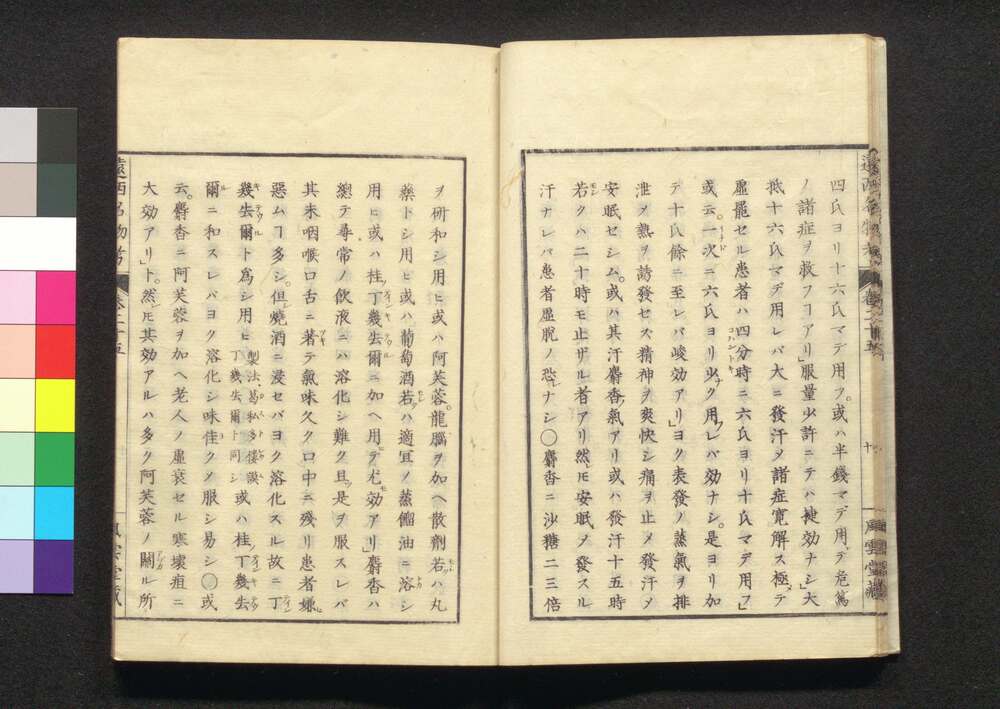 四氏ヨリ十六氏マデ用フ。或ハ半錢マデ用ヒテ危篤
ノ諸症ヲ救フヿアリ」服量少許ニテハ捷効ナシ」大
抵十六氏マデ用レバ大ニ發汗乄諸症寛解ス極テ
虚羸セル患者ハ四分時ニ六氏ヨリ十氏マデ用フ」
或云。一次ニ六氏ヨリ少ク用フレバ効ナシ。是ヨリ加
テ十氏餘ニ至レバ峻効アリ」ヨク表發ノ蒸氣ヲ排
泄乄熱ヲ誘發セズ精神ヲ爽快シ痛ヲ止メ發汗乄
安眠セシム。或ハ其汗麝香氣アリ或ハ發汗十五時
若クハ二十時モ止ザル者アリ然𪜈安眠乄發スル
汗ナレバ患者虚脱ノ恐レナシ〇麝香ニ沙糖二三倍
遠西名物考 卷之二十五 十 風雲堂藏
ヲ研和シ用ヒ或ハ阿芙蓉。龍腦ヲ加ヘ散劑若ハ丸
藥トシ用ヒ或ハ葡萄酒若ハ適宜ノ蒸餾油ニ溶シ
用ヒ或ハ桂丁幾去爾ニ加ヘ用テ尤効アリ」麝香ハ
總テ尋常ノ飲液ニハ溶化シ難ク且ツ是ヲ服スレバ
其末咽喉口舌ニ著テ氣味久ク口中ニ殘リ患者嫌
惡ムヿ多シ。但シ燒酒ニ浸セバヨク溶化スル故ニ丁
幾去爾ト爲シ用ヒ 製法葛私多僂謨丁幾去爾ト同シ 或ハ桂丁幾去
爾ニ和スレバヨク溶化シ味佳クメ服シ易シ〇或
云。麝香ニ阿芙蓉ヲ加ヘ老人ノ虚衰セル寒壞疽ニ
大効アリ」ト。然𪜈其効アルハ多ク阿芙蓉ノ關ル所
遠西名物考 卷二十五 風雲堂藏